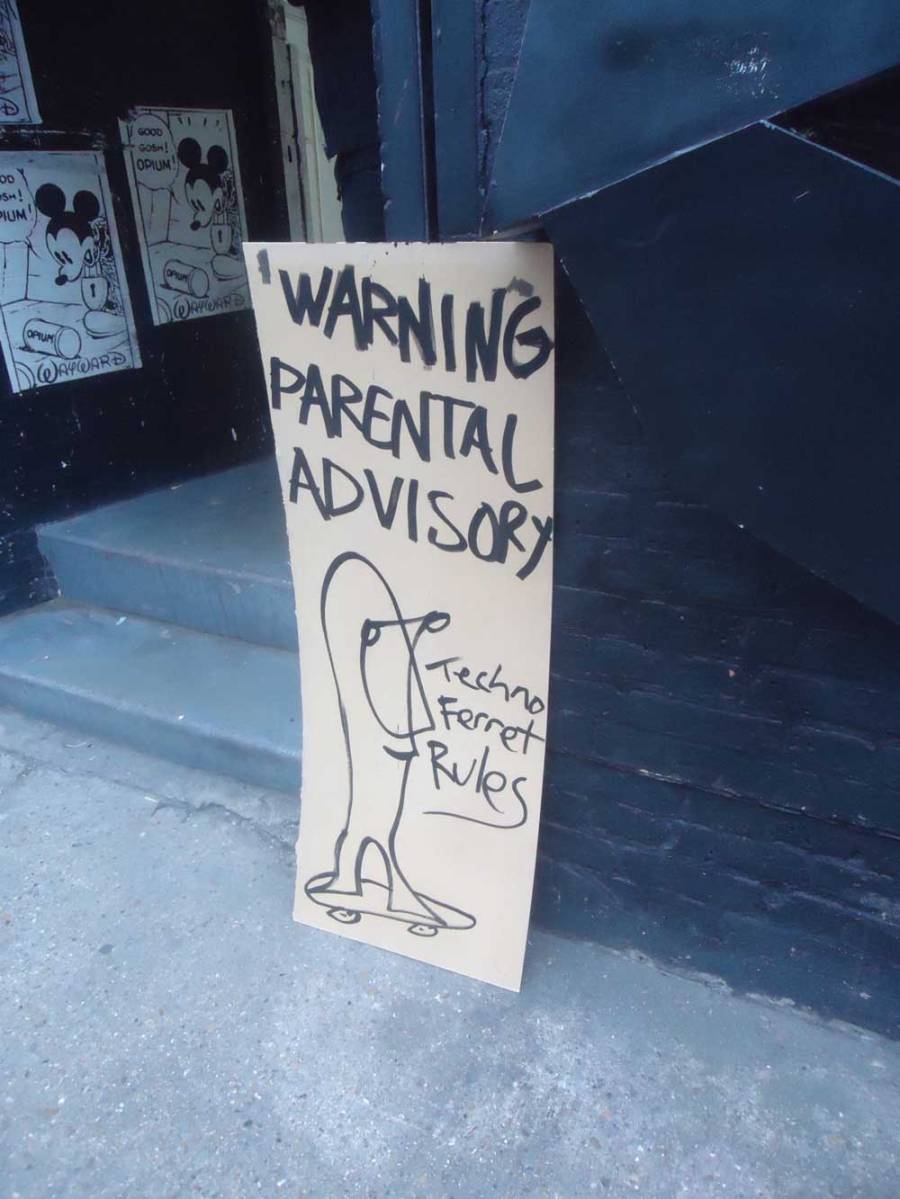 GOOD
GOSH!
OPIUM!
OPIUM
WAYWARD
OPIUM
WAYWARD
WARNING
PARENTAL
ADVISORY
Techno
Ferret
Rules